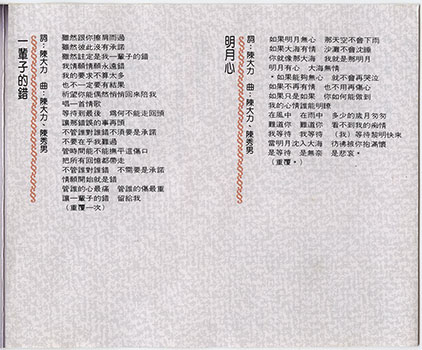 一輩子的錯
詞：陳大力　曲：陳大力、陳秀男
雖然跟你擦肩而過
雖然彼此沒有承諾
雖然註定是我一輩子的錯
我情願情願永遠錯
我的要求不算太多
也不一定要有結果
祈望你能偶然悄悄回來陪我
唱一首情歌
等待到最後　為何不能走回頭
讓那錯誤的事再頭
不管誰對誰錯不須要是承諾
不要在乎我難過
管時間能不能撫平這傷口
把所有回憶都帶走
不管誰對誰錯　不需要是承諾
情願開始就是錯
管誰的心最痛　管誰的傷最重
讓一輩子的錯　留給我
（重覆一次）
明月心
詞：陳大力　曲：陳大力、陳秀男
如果明月無心　那天空不會下雨
如果大海有情　沙灘不會沈睡
你就像那大海　我就是那明月
明月有心　大海無情
＊如果能夠無心　就不會再哭泣
如果不再有情　也不用再傷心
如果只是如果　你如何能做到
我的心情誰能明瞭
在風中　在雨中　多少的歲月匆匆
難道你　難道你　看不到我的痴情
我等待　我等待　（我）等待黎明快來
當明月沈入大海　彷彿被你抱滿懷
是等待　是無奈　是悲哀＊
（重覆＊）